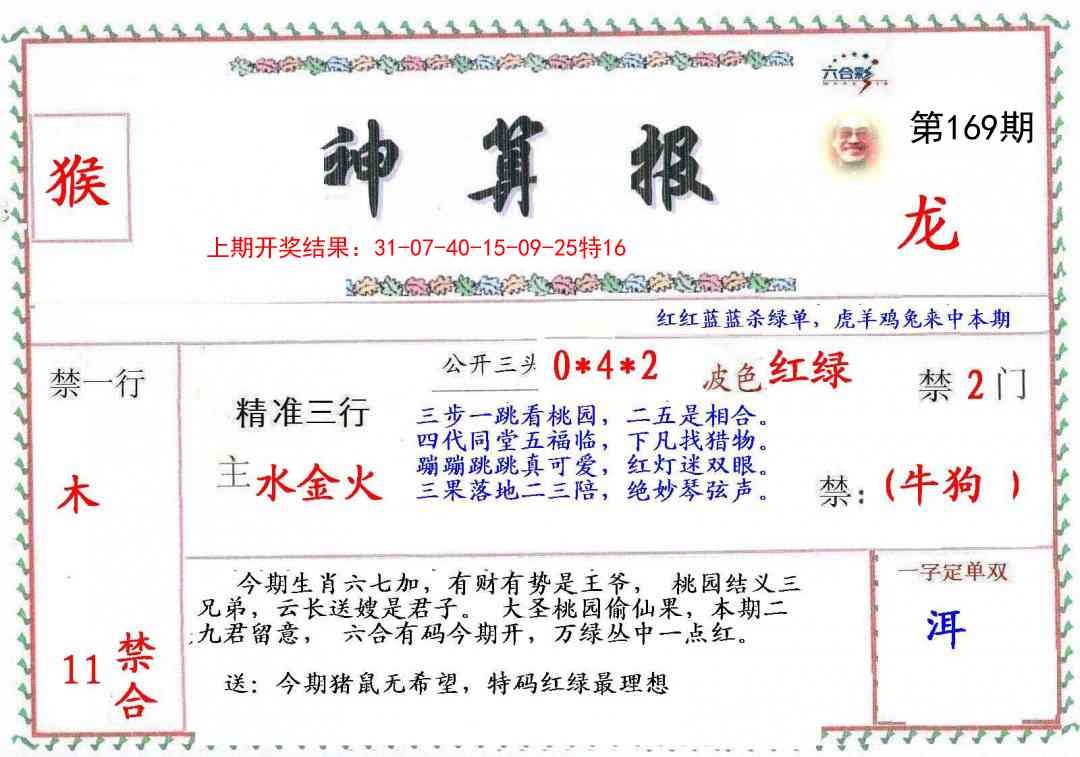 六合彩
神算报
第169期
猴
龙
上期开奖结果：31-07-40-15-09-25特16
红红蓝蓝杀绿单，虎羊鸡兔来中本期
禁一行
木
11
禁合
公开三头 0*4*2 波色 红绿
禁 2 门
精准三行
主 水金火
三步一跳看桃园，二五是相合。
四代同堂五福临，下凡找猎物。
蹦蹦跳跳真可爱，红灯迷双眼。
三果落地二三陪，绝妙琴弦声。
禁：(牛狗 )
今期生肖六七加，有财有势是王爷， 桃园结义三
兄弟，云长送嫂是君子。 大圣桃园偷仙果，本期二
九君留意， 六合有码今期开，万绿丛中一点红。
送：今期猪鼠无希望，特码红绿最理想
一字定单双
洱